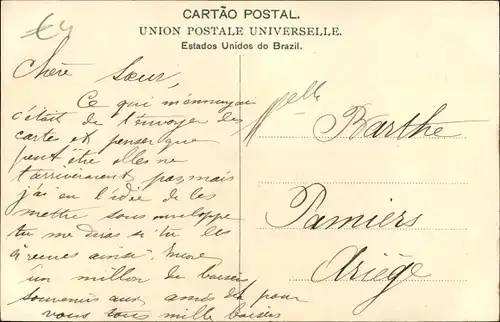 CARTÃO POSTAL.
UNION POSTALE UNIVERSELLE.
Estados Unidos do Brazil.
Chère Soeur,
Ce qui m'ennuyait
c'était de t'envoyer les
cartes et penser que
peut être elles ne
t'arriveraient pas, mais
j'ai eu l'idée de les
mettre sous enveloppe
tu me diras si tu les
reçues ainsi. Encore
un million de baisers
souvenirs aux amis et pour
vous tous mille baisers
Melle
Barthe
Pamiers
Ariège